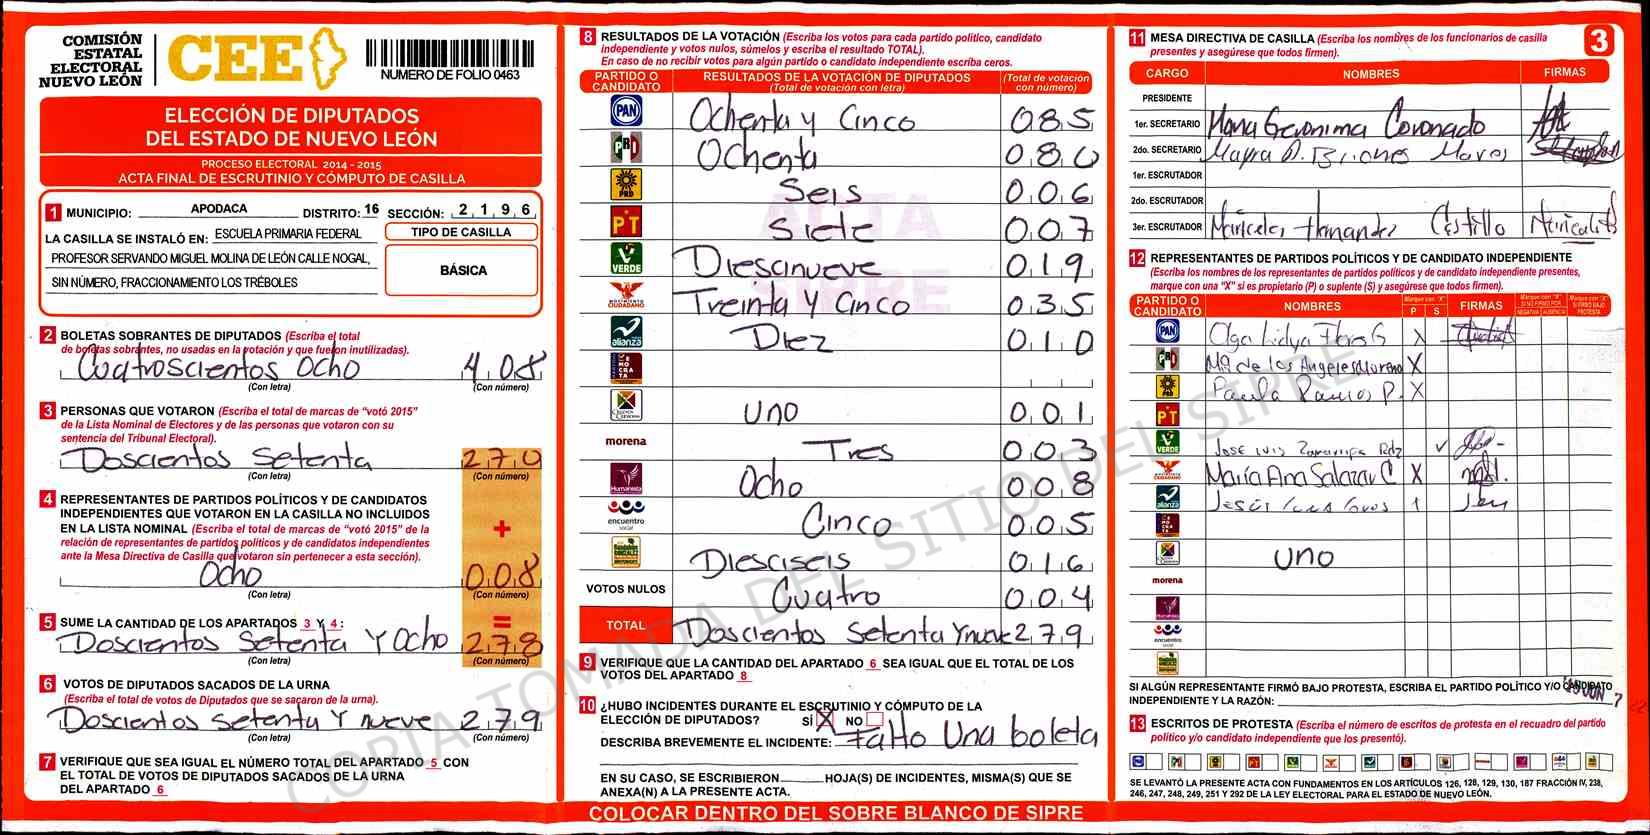 COMISIÓN
ESTATAL
ELECTORAL
NUEVO LEÓN
CEE
NUMERO DE FOLIO 0463
ELECCIÓN DE DIPUTADOS
DEL ESTADO DE NUEVO LEÓN
PROCESO ELECTORAL 2014 - 2015
ACTA FINAL DE ESCRUTINIO Y CÓMPUTO DE CASILLA
1 MUNICIPIO: APODACA DISTRITO: 16 SECCIÓN: 2196
LA CASILLA SE INSTALÓ EN: ESCUELA PRIMARIA FEDERAL
PROFESOR SERVANDO MIGUEL MOLINA DE LEÓN CALLE NOGAL,
SIN NÚMERO, FRACCIONAMIENTO LOS TRÉBOLES
TIPO DE CASILLA
BÁSICA
2 BOLETAS SOBRANTES DE DIPUTADOS (Escriba el total
de boletas sobrantes, no usadas en la votación y que fueron inutilizadas).
Cuatroscientos Ocho 408
(Con letra) (Con número)
3 PERSONAS QUE VOTARON (Escriba el total de marcas de "votó 2015"
de la Lista Nominal de Electores y de las personas que votaron con su
sentencia del Tribunal Electoral).
Doscientos Setenta 270
(Con letra) (Con número)
4 REPRESENTANTES DE PARTIDOS POLÍTICOS Y DE CANDIDATOS
INDEPENDIENTES QUE VOTARON EN LA CASILLA NO INCLUIDOS
EN LA LISTA NOMINAL (Escriba el total de marcas de "votó 2015" de la
relación de representantes de partidos políticos y de candidatos independientes
ante la Mesa Directiva de Casilla que votaron sin pertenecer a esta sección).
+
Ocho 008
(Con letra) (Con número)
5 SUME LA CANTIDAD DE LOS APARTADOS 3 Y 4: =
Doscientos Setenta Y Ocho 278
(Con letra) (Con número)
6 VOTOS DE DIPUTADOS SACADOS DE LA URNA
(Escriba el total de votos de Diputados que se sacaron de la urna).
Doscientos Setenta Y nueve 279
(Con letra) (Con número)
7 VERIFIQUE QUE SEA IGUAL EL NÚMERO TOTAL DEL APARTADO 5 CON
EL TOTAL DE VOTOS DE DIPUTADOS SACADOS DE LA URNA
DEL APARTADO 6
8 RESULTADOS DE LA VOTACIÓN (Escriba los votos para cada partido político, candidato
independiente y votos nulos, súmelos y escriba el resultado TOTAL).
En caso de no recibir votos para algún partido o candidato independiente escriba ceros.
PARTIDO O CANDIDATO RESULTADOS DE LA VOTACIÓN DE DIPUTADOS (Total de votación con letra) (Total de votación con número)
PAN Ochenta y Cinco 085
PRI Ochenta 080
PRD Seis 006
PT Siete 007
VERDE Diescinueve 019
MOVIMIENTO CIUDADANO Treinta Y Cinco 035
alianza Diez 010
DEMOCRATA
uno 001
morena Tres 003
Humanista Ocho 008
encuentro social Cinco 005
Diesciseis 016
VOTOS NULOS Cuatro 004
TOTAL Doscientos Setenta Y nueve 279
9 VERIFIQUE QUE LA CANTIDAD DEL APARTADO 6 SEA IGUAL QUE EL TOTAL DE LOS
VOTOS DEL APARTADO 8
10 ¿HUBO INCIDENTES DURANTE EL ESCRUTINIO Y CÓMPUTO DE LA
ELECCIÓN DE DIPUTADOS? SÍ X NO
DESCRIBA BREVEMENTE EL INCIDENTE: Falto Una boleta
EN SU CASO, SE ESCRIBIERON HOJA(S) DE INCIDENTES, MISMA(S) QUE SE
ANEXA(N) A LA PRESENTE ACTA.
COLOCAR DENTRO DEL SOBRE BLANCO DE SIPRE
11 MESA DIRECTIVA DE CASILLA (Escriba los nombres de los funcionarios de casilla
presentes y asegúrese que todos firmen).
3
CARGO NOMBRES FIRMAS
PRESIDENTE
1er. SECRETARIO Maria Geronima Coronado
2do. SECRETARIO Mayra Briones
1er. ESCRUTADOR
2do. ESCRUTADOR
3er. ESCRUTADOR Maricela Hernandez Castillo
12 REPRESENTANTES DE PARTIDOS POLÍTICOS Y DE CANDIDATO INDEPENDIENTE
(Escriba los nombres de los representantes de partidos políticos y de candidato independiente presentes,
marque con una "X" si es propietario (P) o suplente (S) y asegúrese que todos firmen).
PARTIDO O CANDIDATO NOMBRES Marque con "X" P S FIRMAS Marque con "X" SI NO FIRMÓ POR NEGATIVA AUSENCIA Marque con "X" SI FIRMÓ BAJO PROTESTA
PAN Olga Lidya Flores G X
PRI Ma de los Angeles Moreno X
PRD Paula Ramos P. X
PT
VERDE JOSE LUIS
MOVIMIENTO CIUDADANO María Ana Salazar C X
alianza JESÚS
DEMOCRATA
uno
morena
Humanista
encuentro social
SI ALGÚN REPRESENTANTE FIRMÓ BAJO PROTESTA, ESCRIBA EL PARTIDO POLÍTICO Y/O CANDIDATO
INDEPENDIENTE Y LA RAZÓN:
13 ESCRITOS DE PROTESTA (Escriba el número de escritos de protesta en el recuadro del partido
político y/o candidato independiente que los presentó).
SE LEVANTÓ LA PRESENTE ACTA CON FUNDAMENTOS EN LOS ARTÍCULOS 126, 128, 129, 130, 187 FRACCIÓN IV, 238,
246, 247, 248, 249, 251 Y 292 DE LA LEY ELECTORAL PARA EL ESTADO DE NUEVO LEÓN.
ACTA
SIPRE
COPIA TOMADA DEL SITIO DEL SIPRE